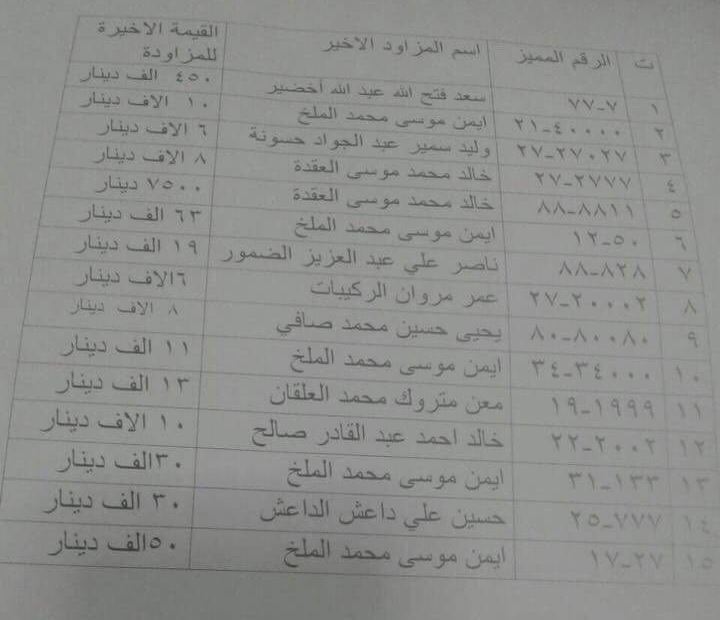 ت الرقم المميز اسم المزاود الاخير القيمة الاخيرة للمزاودة
١ ٧-٧٧ سعد فتح الله عبد الله أخضير ٤٥٠ الف دينار
٢ ٤٠٠٠٠-٢١ ايمن موسى محمد الملخ ١٠ الاف دينار
٣ ٢٧٠٢٧-٢٧ وليد سمير عبد الجواد حسونة ٦ الاف دينار
٤ ٢٧٧٧-٢٧ خالد محمد موسى العقدة ٨ الاف دينار
٥ ٨٨١١-٨٨ خالد محمد موسى العقدة ٧٥٠٠ دينار
٦ ٥٠-١٢ ايمن موسى محمد الملخ ٦٣ الف دينار
٧ ٨٢٨-٨٨ ناصر علي عبد العزيز الضمور ١٩ الف دينار
٨ ٢٠٠٠٢-٢٧ عمر مروان الركيبات ٦الاف دينار
٩ ٨٠٠٨٠-٨٠ يحيى حسين محمد صافي ٨ الاف دينار
١٠ ٣٤٠٠٠-٣٤ ايمن موسى محمد الملخ ١١ الف دينار
١١ ١٩٩٩-١٩ معن متروك محمد العلقان ١٣ الف دينار
١٢ ٢٠٠٢-٢٢ خالد احمد عبد القادر صالح ١٠ الاف دينار
١٣ ١٣٣-٣١ ايمن موسى محمد الملخ ٣٠الف دينار
١٤ ٧٧٧-٢٥ حسين علي داعش الداعش ٣٠ الف دينار
١٥ ٢٧-١٧ ايمن موسى محمد الملخ ٥٠الف دينار